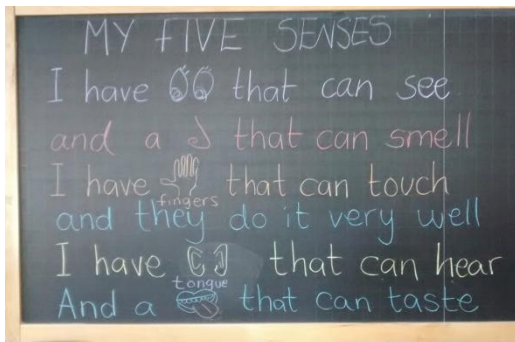 MY FIVE SENSES
I have that can see
and a that can smell
I have that can touch
fingers
and they do it very well
I have that can hear
tongue
And a that can taste